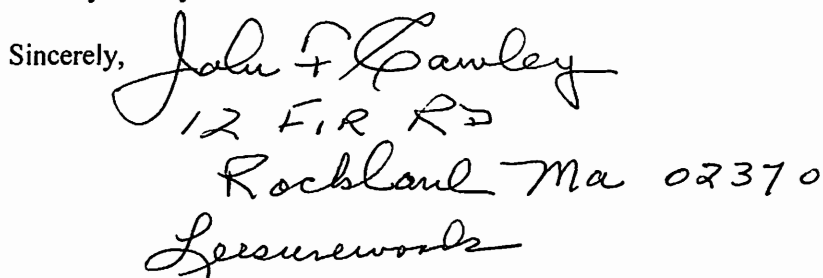 Sincerely, John F Cawley
12 FIR RD
Rockland Ma 02370
Leisurewoods